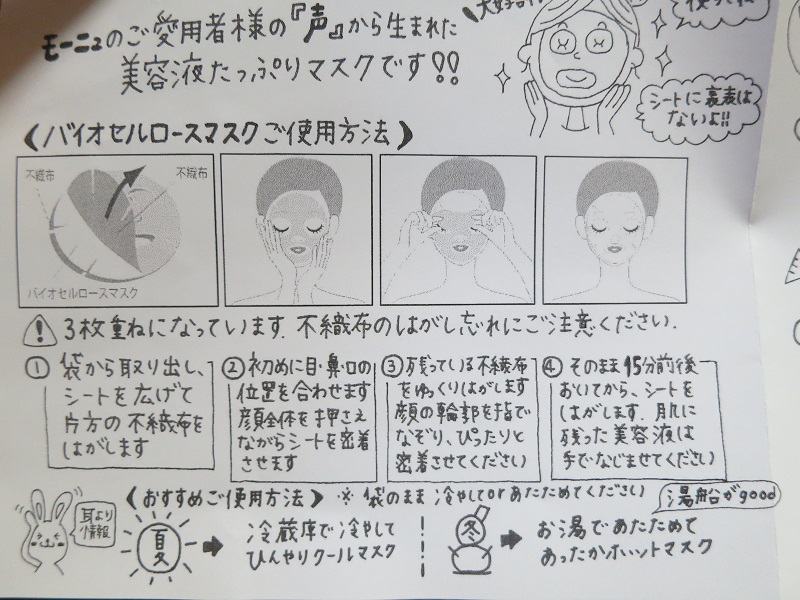 モーニュのご愛用者様の『声』から生まれた
美容液たっぷりマスクです!!
シートに裏表は
ないよ!!
《バイオセルロースマスクご使用方法》
不織布
不織布
バイオセルロースマスク
3枚重ねになっています。不織布のはがし忘れにご注意ください.
① 袋から取り出し、
シートを広げて
片方の不織布を
はがします
② 初めに目・鼻・口の
位置を合わせます
顔全体を押さえ
ながらシートを密着
させます
③ 残っている不織布
をゆっくりはがします
顔の輪郭を指で
なぞり、ぴったりと
密着させてください
④ そのまま15分前後
おいてから、シートを
はがします. 肌に
残った美容液は
手でなじませてください
耳より
情報
《おすすめご使用方法》 ※ 袋のまま冷やしてorあたためてください
湯船がgood
夏
冷蔵庫で冷やして
ひんやりクールマスク
冬
お湯であたためて
あったかホットマスク